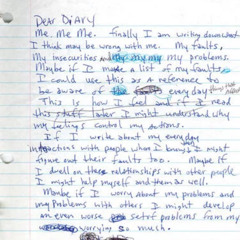 Dear DiARy
Me. Me. Me. finally I am writing down what
I think may be wrong with me. My faults,
My insecurities and my my my problems.
Maybe if I make a list of my faults
I could use this as a reference to
be aware of the every day
This is how I feel and if I read
this stuff later I might understand why
my feelings control my actions.
If I write about my everyday
interactions with people when I buy I might
figure out their faults too. Maybe if
I dwell on these relationships with other people
I might help myself and them as well.
Maybe if I worry about my problems and
my Problems with others I might develop
an even worse set of problems from my
worrying so much.